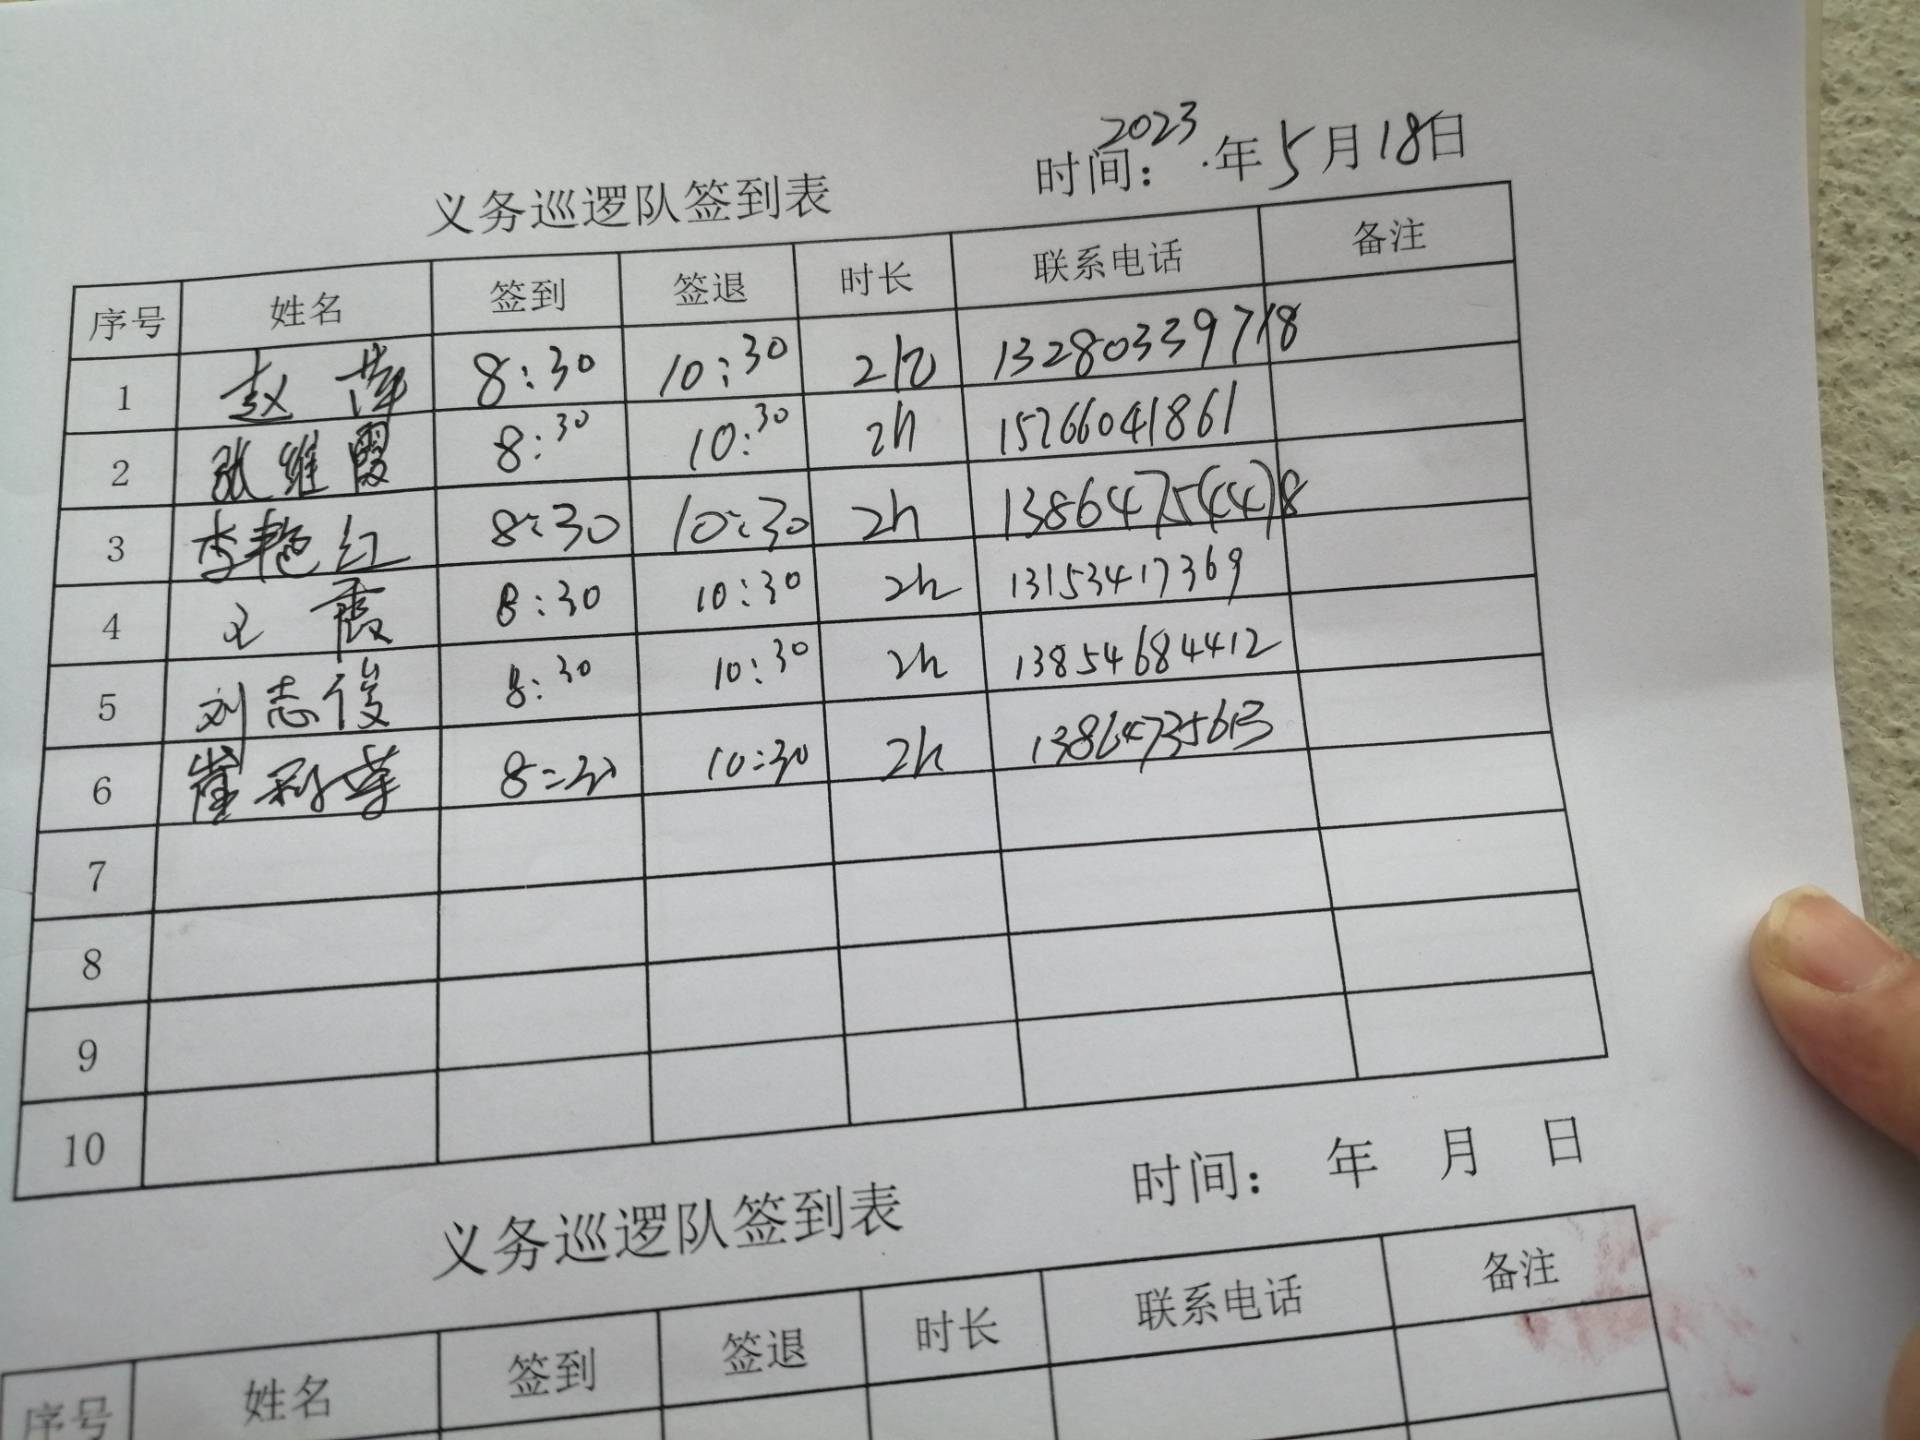 时间：2023年5月18日
义务巡逻队签到表
序号 姓名 签到 签退 时长 联系电话 备注
1 赵萍 8:30 10:30 2h 13280339718
2 张维霞 8:30 10:30 2h 15266041861
3 李艳红 8:30 10:30 2h
4 王霞 8:30 10:30 2h 13153417369
5 刘志俊 8:30 10:30 2h 13854684412
6 崔 8:30 10:30 2h 13864735613
7
8
9
10
时间： 年 月 日
义务巡逻队签到表
序号 姓名 签到 签退 时长 联系电话 备注